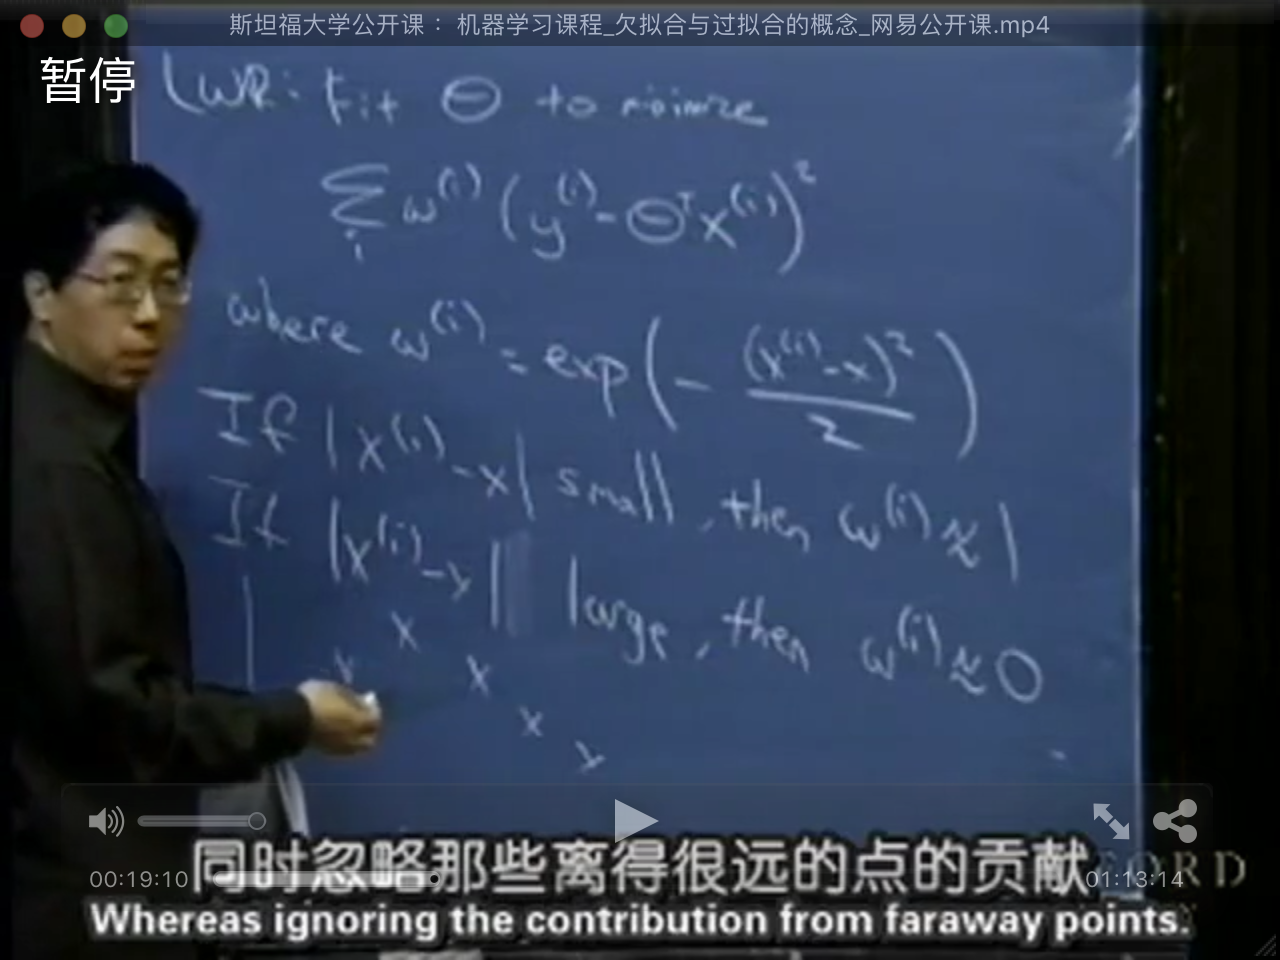 斯坦福大学公开课 ：机器学习课程_欠拟合与过拟合的概念_网易公开课.mp4
暂停
LWR: Fit Θ to minimize
∑ᵢ w⁽ⁱ⁾ (y⁽ⁱ⁾ - Θᵀx⁽ⁱ⁾)²
where w⁽ⁱ⁾ = exp(- (x⁽ⁱ⁾-x)²/2)
If |x⁽ⁱ⁾-x| small, then w⁽ⁱ⁾ ≈ 1
If |x⁽ⁱ⁾-x| large, then w⁽ⁱ⁾ ≈ 0
同时忽略那些离得很远的点的贡献
00:19:10
01:13:14
Whereas ignoring the contribution from faraway points.